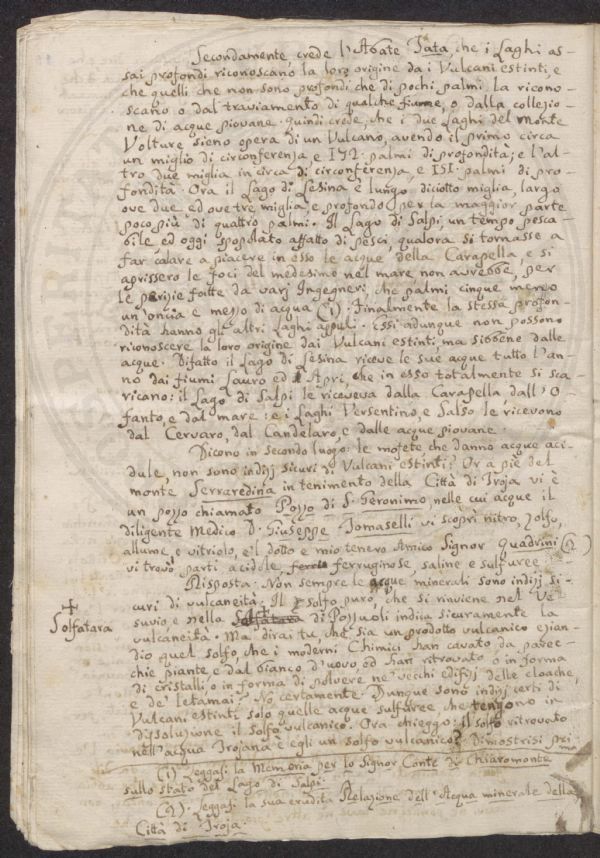 Secondamente, crede l'Abate Tata, che i Laghi as-
sai profondi riconoscano la loro origine da i Vulcani estinti, e
che quelli che non sono profondi che di pochi palmi la ricono-
scano o dal traviamento di qualche fiume, o dalla collezio-
ne di acque piovane. Quindi crede, che i due Laghi del Monte
Volture sieno opera di un Vulcano, avendo il primo circa
un miglio di circonferenza, e 152. palmi di profondità; e l'al-
tro due miglia in circa di circonferenza, e 151. palmi di pro-
fondità. Ora il Lago di Lesina è lungo diciotto miglia, largo
ove due ed ove tre miglia, e profondo per la maggior parte
poco più di quattro palmi. Il Lago di Salpi, un tempo pesca-
bile ed oggi spopolato affatto di pesci, qualora si tornasse a
far calare a piacere in esso le acque della Carapella, e si
aprissero le foci del medesimo nel mare, non avrebbe, per
le perizie fatte da varj Ingegneri, che palmi cinque meno
un'oncia e mezzo di acqua (1). Finalmente la stessa profon-
dità hanno gli altri Laghi appuli. Essi adunque non possono
riconoscere la loro origine dai Vulcani estinti, ma sibbene dalle
acque. Difatto il Lago di Lesina riceve le sue acque tutto l'an-
no dai fiumi Lauro ed Apri, che in esso totalmente si sca-
ricano: il Lago di Salpi le riceveva dalla Carapella dall'O-
fanto, e dal mare: e i Laghi Versentino, e Salso le ricevono
dal Cervaro, dal Candelaro, e dalle acque piovane.
Dicono in secondo luogo: le mofete che danno acque aci-
dule, non sono indizj sicuri di Vulcani estinti? Or a piè del
monte Serraredina in tenimento della Città di Troja vi è
un pozzo chiamato Pozzo di S. Geronimo, nelle cui acque il
diligente Medico D. Giuseppe Tomaselli vi scoprì nitro, zolfo,
allume, e vitriolo, e il dotto e mio tenero Amico Signor Quadrini (2)
vi trovò parti acidole, ferruginose, saline e sulfuree.
Risposta. Non sempre le acque minerali sono indizj si-
curi di vulcaneità. Il zolfo puro, che si riaviene nel Ve-
suvio e nella Solfatara di Pozzuoli indica sicuramente la
+
Solfatara
vulcaneità. Ma, dirai tu, che sia un prodotto vulcanico ezian-
dio quel solfo, che i moderni Chimici han cavato da parec-
chie piante e dal bianco d'uovo, od han ritrovato o in forma
di cristalli, o in forma di polvere ne' vecchi edifizj delle cloache,
e de' letamai? No certamente. Dunque sono indizj certi di
Vulcani estinti solo quelle acque sulfuree che tengono in
dissoluzione il solfo vulcanico. Ora chieggo: il solfo ritrovato
nell'acqua Trojana è egli un solfo vulcanico? Dimostrisi pri-
mo
(1). Leggasi la Memoria per lo Signor Conte di Chiaromonte
sullo stato del Lago di Salpi.
(2). Leggasi la sua erudita Relazione dell'Acqua minerale della
Città di Troja.